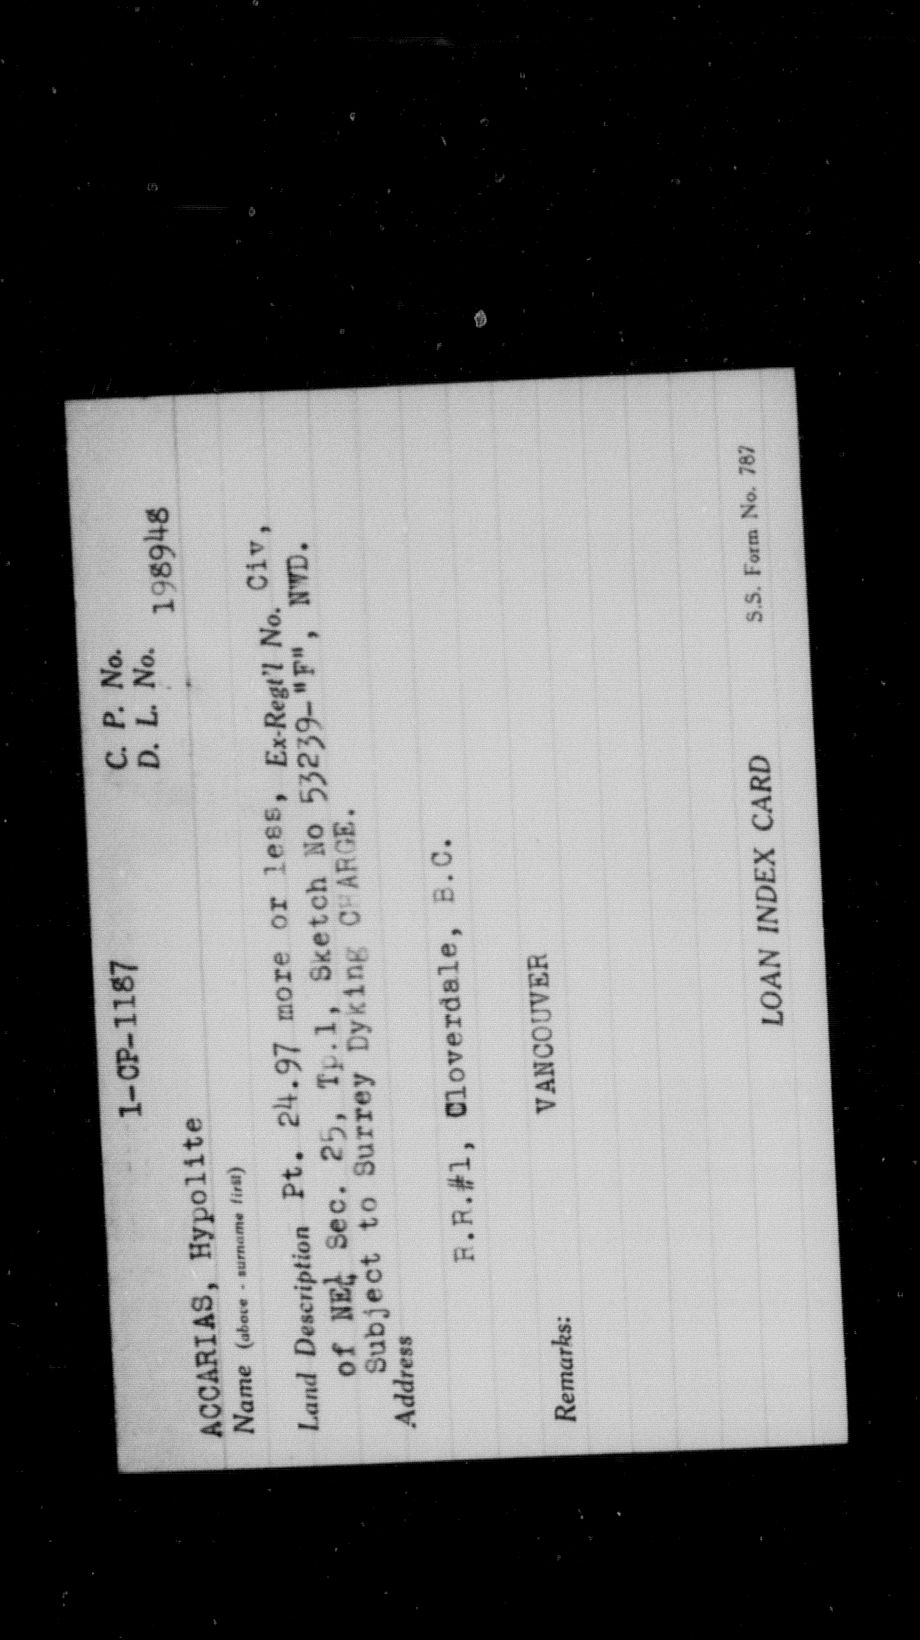 1-CP-1187 C. P. No.
D. L. No. 198948
ACCARIAS, Hypolite
Name (above - surname first)
Ex-Regt'l No. Civ,
Land Description Pt. 24.97 more or less,
of NE¼ Sec. 25, Tp.1, Sketch No 53239-"F", NWD.
Subject to Surrey Dyking CHARGE.
Address
R.R.#1, Cloverdale, B.C.
Remarks: VANCOUVER
LOAN INDEX CARD S.S. Form No. 787